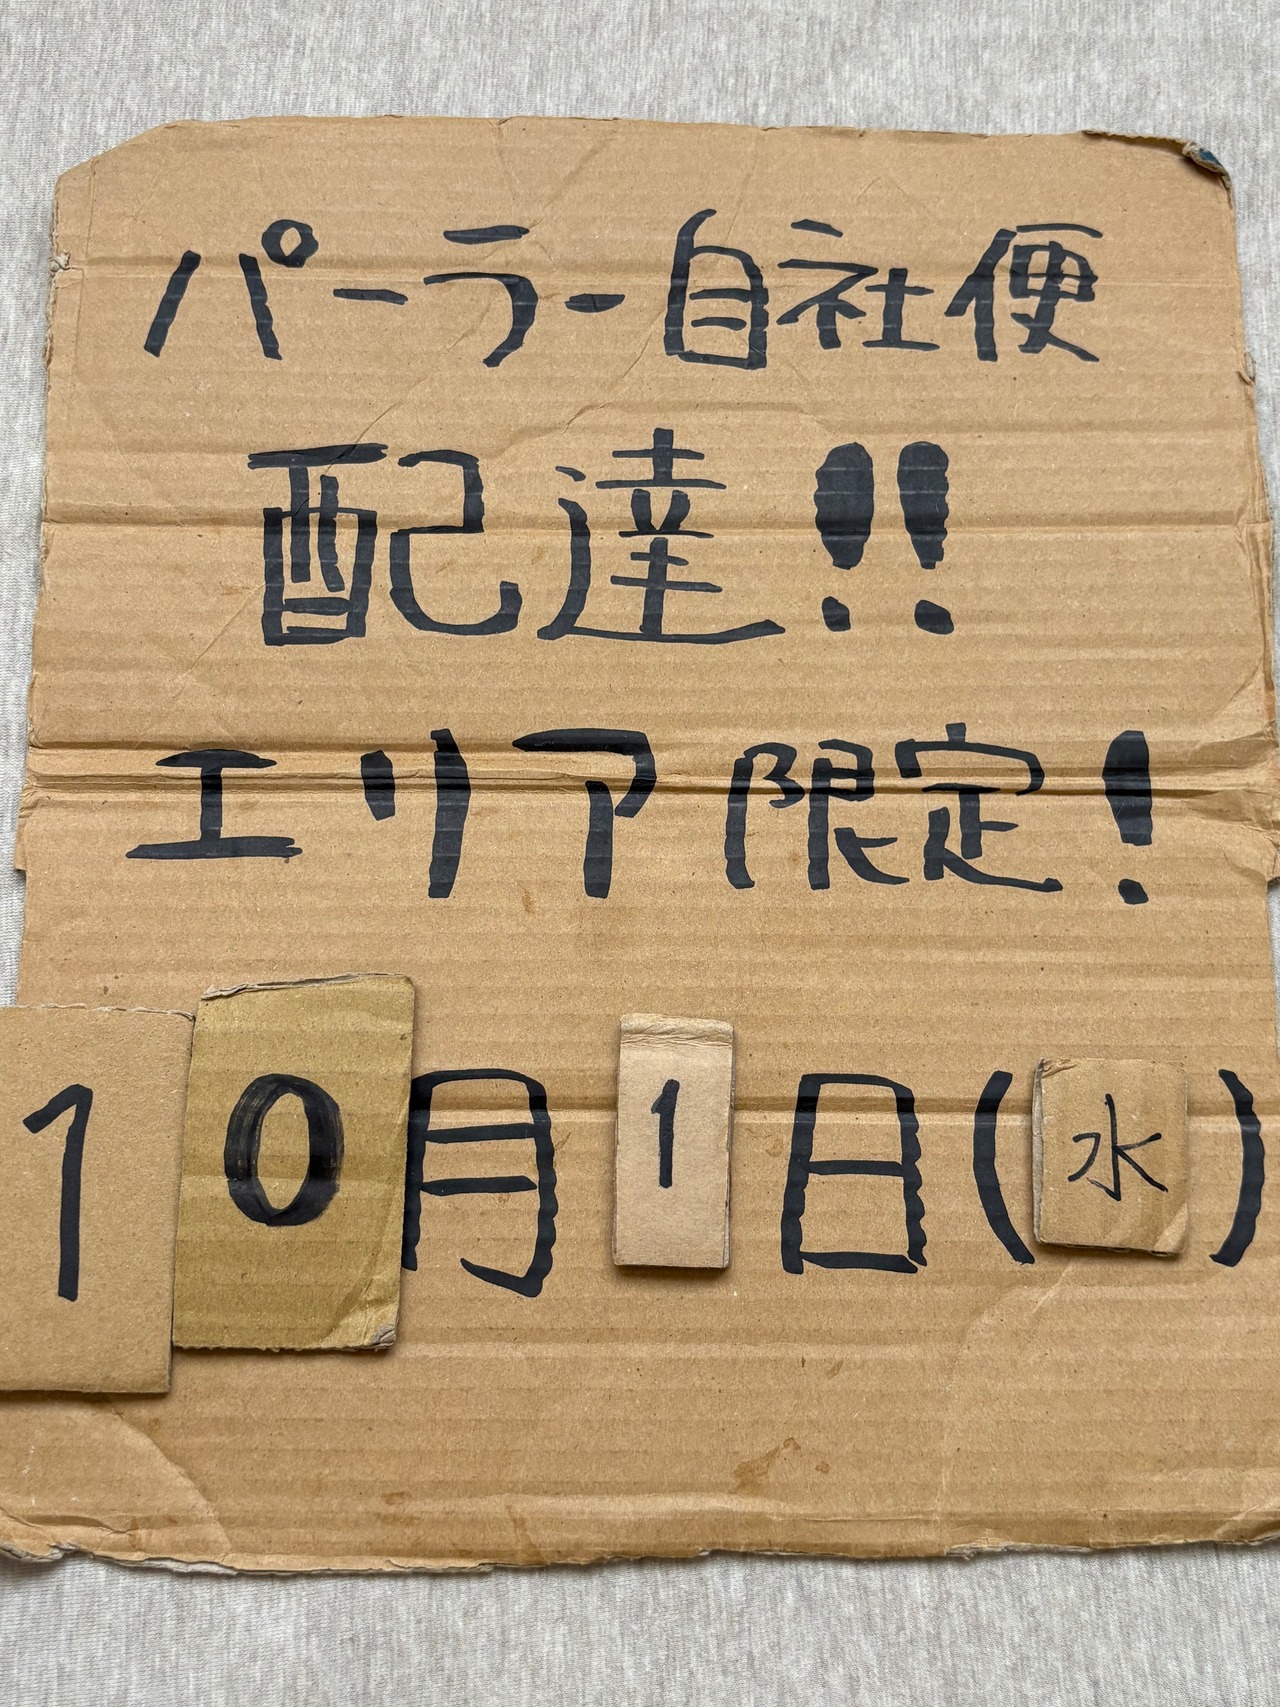 パーラー自社便
配達!!
エリア限定!
10月1日(水)